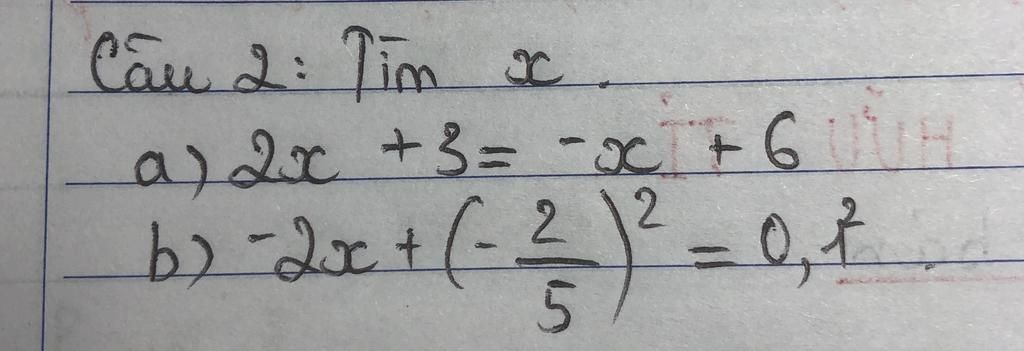 Câu 2: Tìm x.
a) 2x + 3 = -x + 6
b) -2x + (-2/5)² = 0,1²